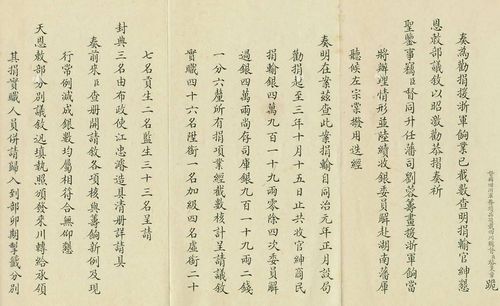 奏為勸捐援浙軍餉業已截數查明捐輸官紳懇
恩敕部議敘以昭激勸恭摺奏祈
聖鑒事竊臣督同升任藩司劉蓉籌畫援浙軍餉當
將辦理情形並陸續收銀委員解赴湖南藩庫
聽候左宗棠撥用迭經
奏明在案茲查此案捐輸自同治元年正月設局
勸捐起至三年十月十五日止共收官紳商民
捐輸銀四萬九百一十九兩零除四次委員解
過銀四萬兩尚存司庫銀九百一十九兩二錢
一分六釐所有捐項業經截數核計呈請議敘
實職四十六名陞銜一名加級四名虛銜二十
七名貢生二名監生三十三名呈請
封典三名由布政使江忠濬造具清冊詳請具
奏前來臣查冊開請敘各項核與籌餉新例及現
行常例減成銀數均屬相符合無仰懇
天恩敕部分別議敘迅填執照頒發來川轉給承領
其捐實職人員併請歸入到部卯期掣籤分別